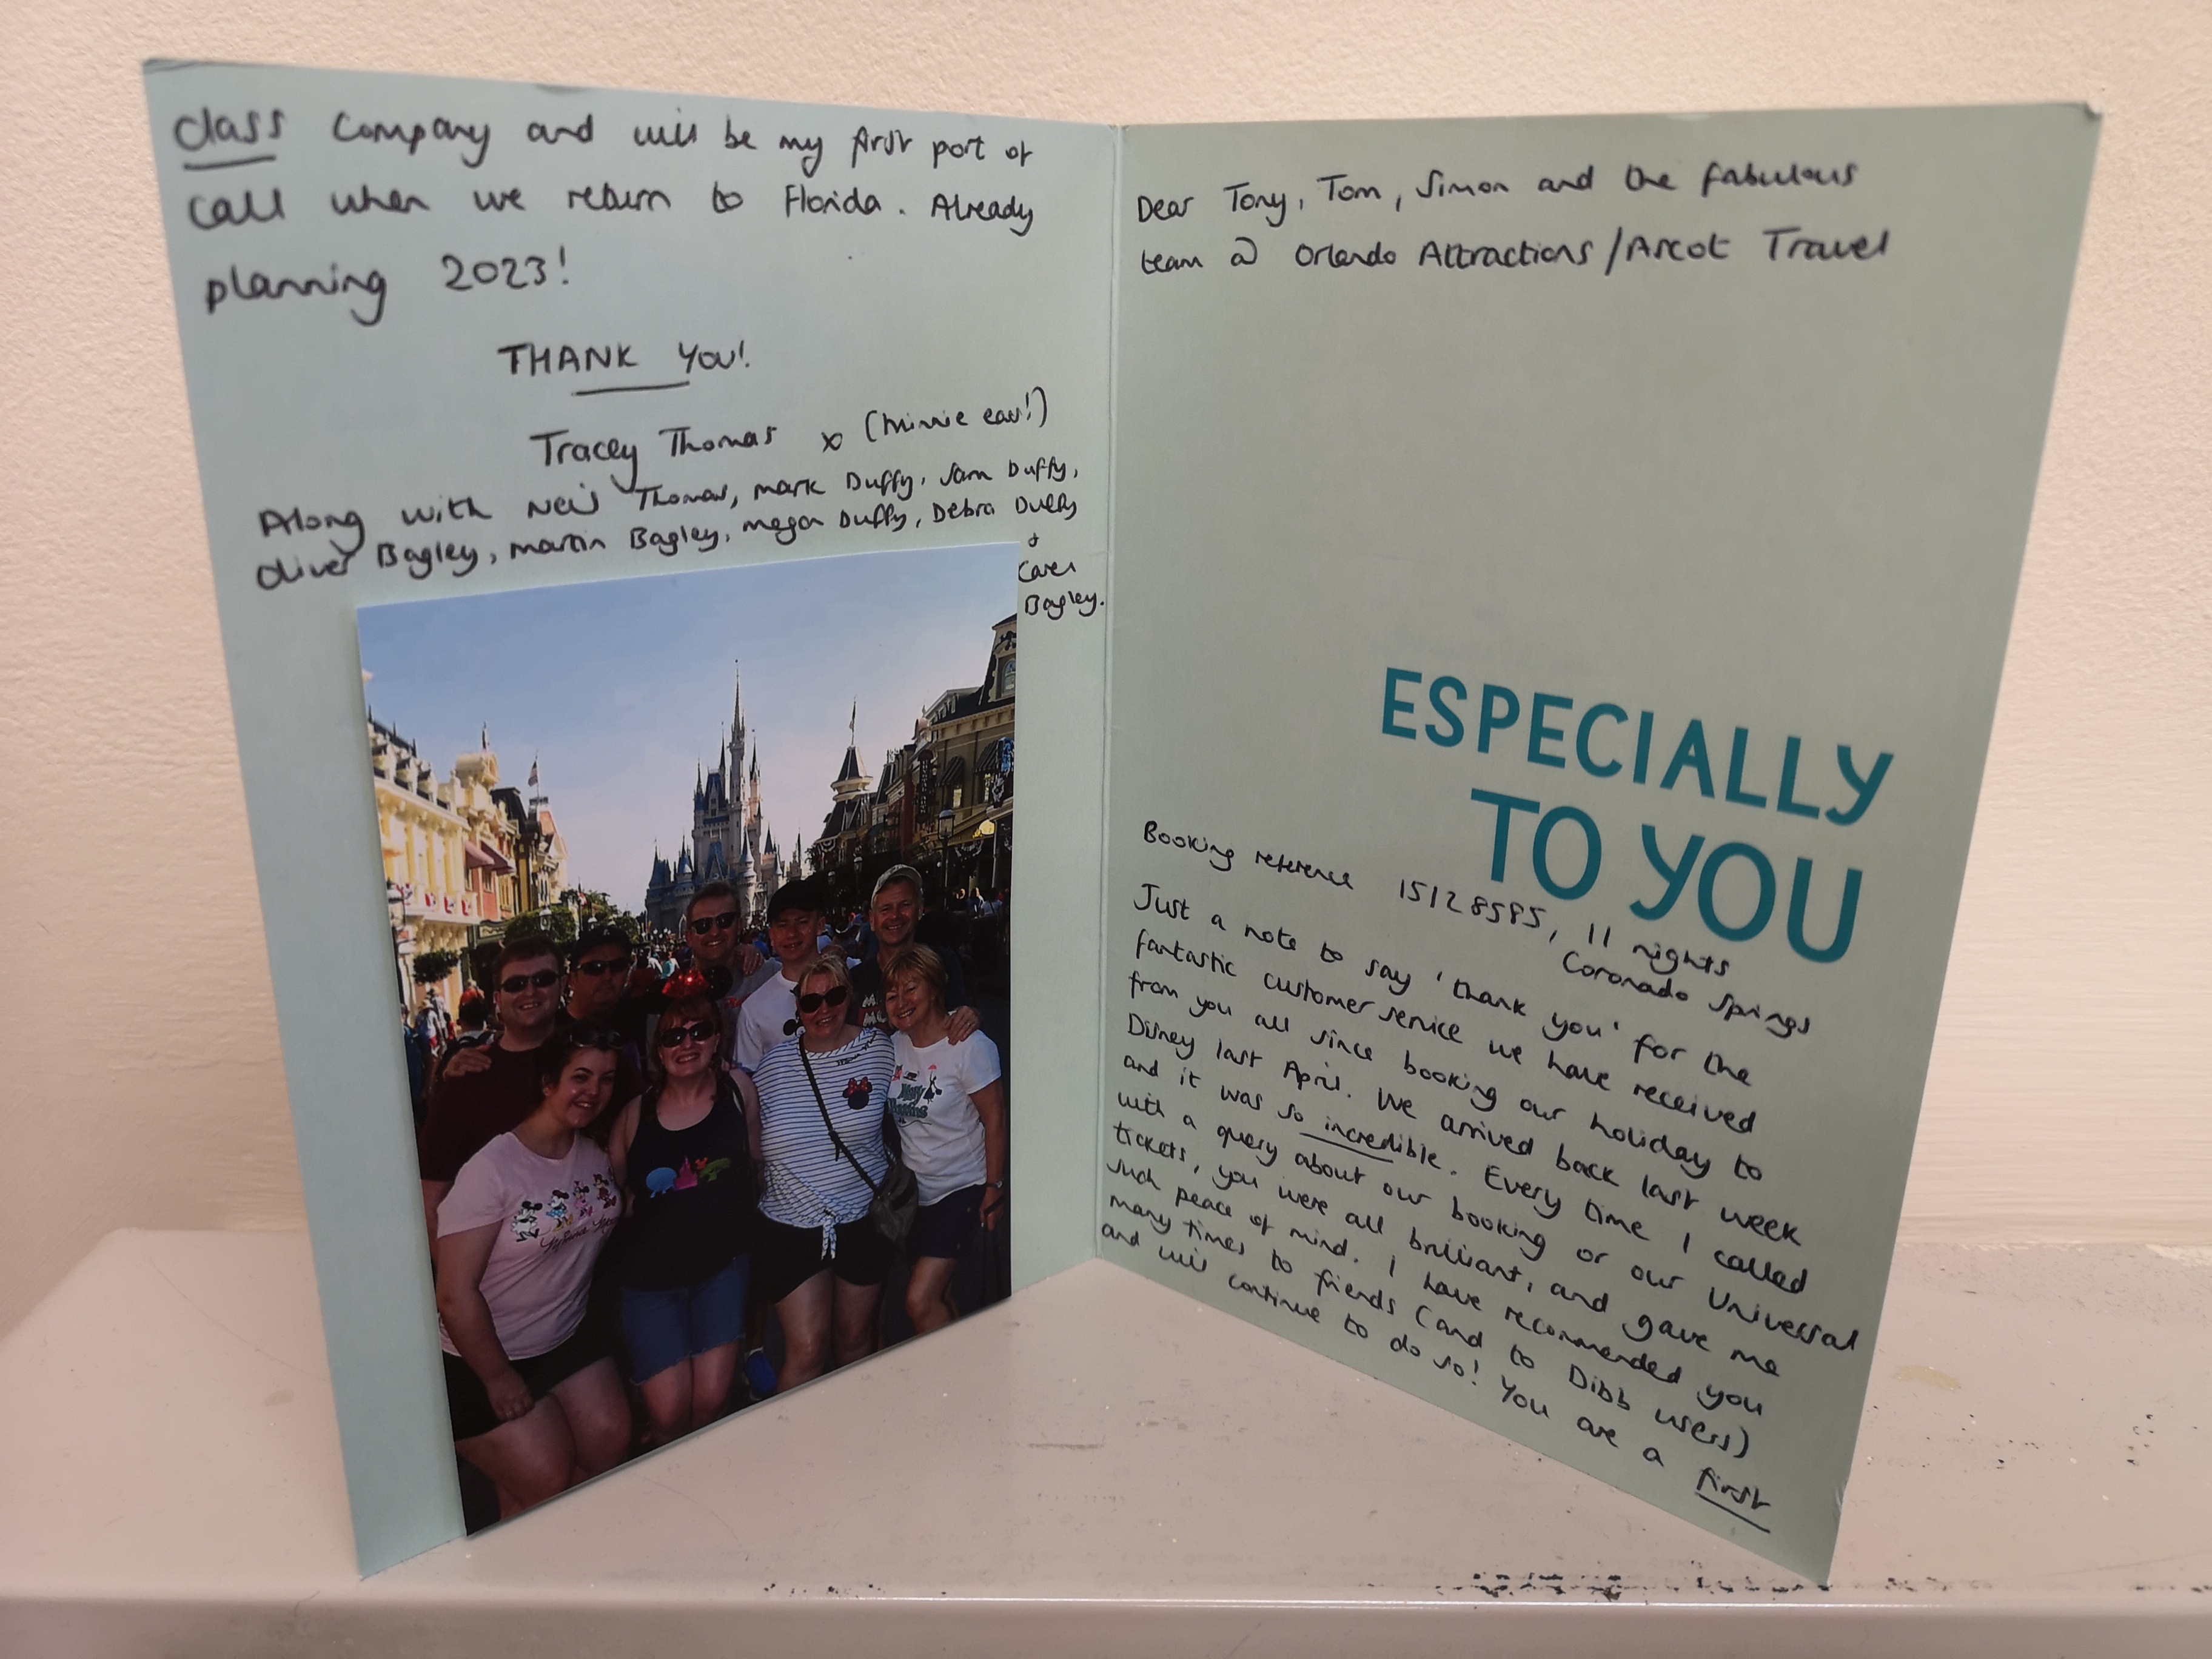 Dear Tony, Tom, Simon and the fabulous
team @ Orlando Attractions/Ascot Travel
ESPECIALLY
TO YOU
Booking reference 15128585, 11 nights
Coronado Springs
Just a note to say 'thank you' for the
fantastic customer service we have received
from you all since booking our holiday to
Disney last April. We arrived back last week
and it was so incredible. Every time I called
with a query about our booking or our Universal
tickets, you were all brilliant, and gave me
such peace of mind. I have recommended you
many times to friends (and to Dibb users)
and will continue to do so! You are a first
class company and will be my first port of
call when we return to Florida. Already
planning 2023!
THANK YOU!
Tracey Thomas x (Minnie ears!)
Along with Neil Thomas, Mark Duffy, Sam Duffy,
Oliver Bagley, Martin Bagley, Megan Duffy, Debra Duffy
&
Bagley.